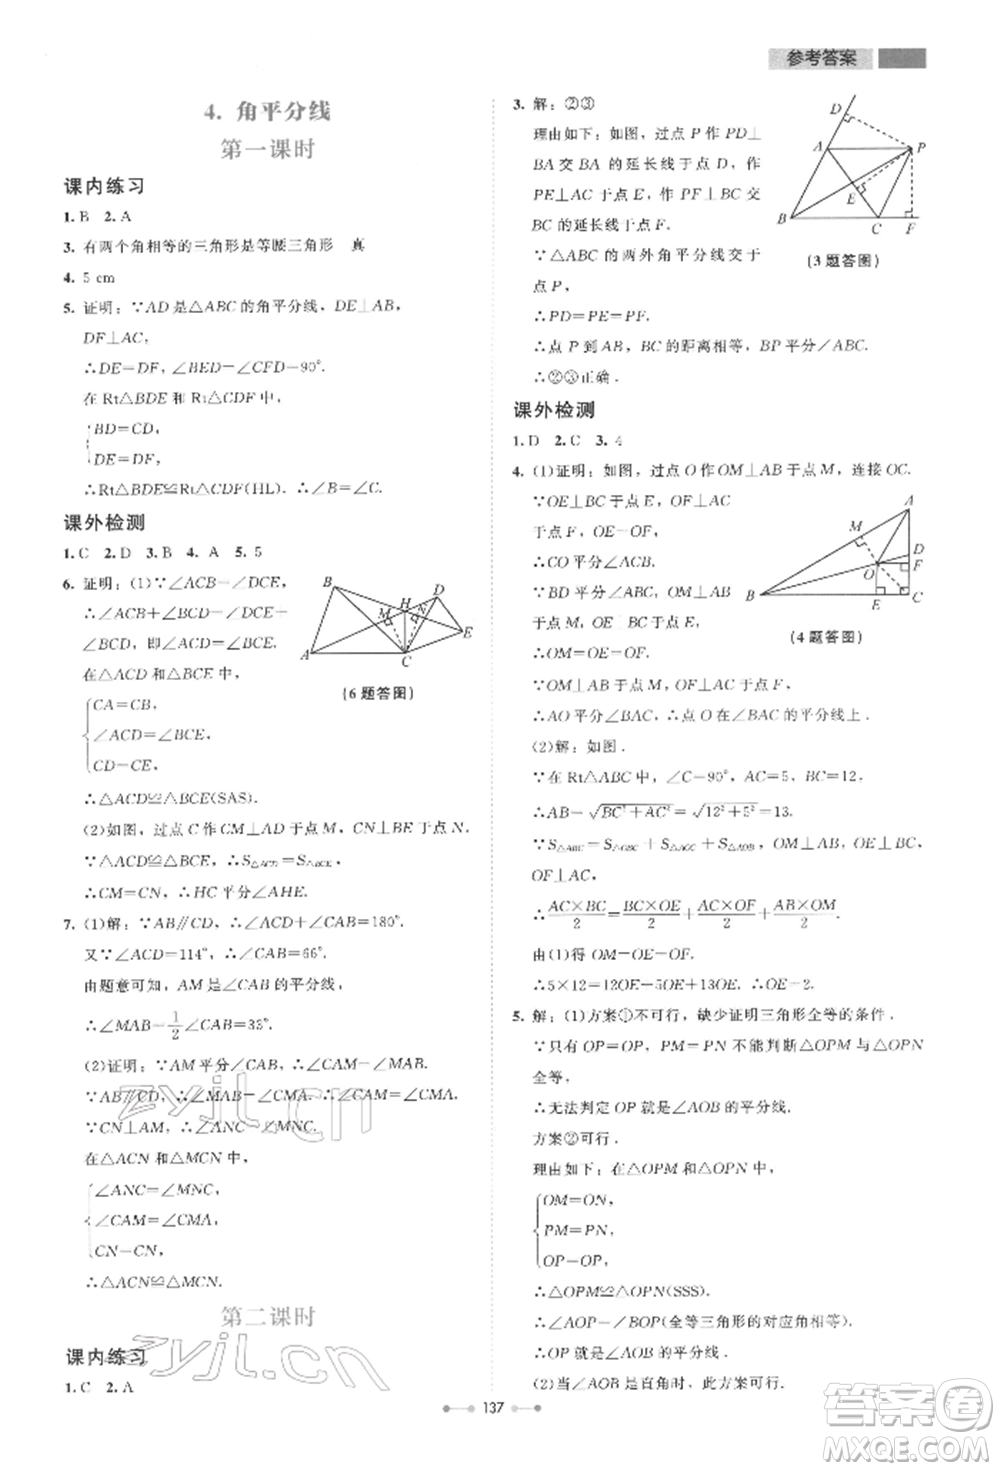 参考答案
4. 角平分线
第一课时
课内练习
1. B 2. A
3. 有两个角相等的三角形是等腰三角形 真
4. 5 cm
5. 证明：∵AD是△ABC的角平分线，DE⊥AB，
DF⊥AC，
∴DE=DF，∠BED=∠CFD=90°.
在Rt△BDE和Rt△CDF中，
BD=CD，
DE=DF，
∴Rt△BDE≌Rt△CDF(HL). ∴∠B=∠C.
课外检测
1. C 2. D 3. B 4. A 5. 5
6. 证明：(1)∵∠ACB=∠DCE，
∴∠ACB+∠BCD=∠DCE+
∠BCD，即∠ACD=∠BCE.
在△ACD和△BCE中，
CA=CB，
∠ACD=∠BCE，
CD=CE，
∴△ACD≌△BCE(SAS).
B H D M N E A C
(6题答图)
(2)如图，过点C作CM⊥AD于点M，CN⊥BE于点N.
∵△ACD≌△BCE，∴S△ACD=S△BCE.
∴CM=CN，∴HC平分∠AHE.
7. (1)解：∵AB∥CD，∴∠ACD+∠CAB=180°.
又∵∠ACD=114°，∴∠CAB=66°.
由题意可知，AM是∠CAB的平分线，
∴∠MAB=1/2∠CAB=33°.
(2)证明：∵AM平分∠CAB，∴∠CAM=∠MAB.
∵AB∥CD，∴∠MAB=∠CMA.∴∠CAM=∠CMA.
∵CN⊥AM，∴∠ANC=∠MNC.
在△ACN和△MCN中，
∠ANC=∠MNC，
∠CAM=∠CMA，
CN=CN，
∴△ACN≌△MCN.
第二课时
课内练习
1. C 2. A
3. 解：②③
理由如下：如图，过点P作PD⊥
BA交BA的延长线于点D，作
PE⊥AC于点E，PF⊥BC交
BC的延长线于点F.
∵△ABC的两外角平分线交于
点P，
∴PD=PE=PF.
∴点P到AB，BC的距离相等，BP平分∠ABC.
∴②③正确.
D A P E B C F
(3题答图)
课外检测
1. D 2. C 3. 4
4. (1)证明：如图，过点O作OM⊥AB于点M，连接OC.
∵OE⊥BC于点E，OF⊥CA
于点F，OE=OF，
∴CO平分∠ACB.
∵BD平分∠ABC，OM⊥AB
于点M，OE⊥BC于点E，
∴OM=OE=OF.
A M D O F B E C
(4题答图)
∵OM⊥AB于点M，OF⊥CA于点F，
∴AO平分∠BAC，∴点O在∠BAC的平分线上.
(2)解：如图.
∵在Rt△ABC中，∠C=90°，AC=5，BC=12，
∴AB=√BC²+AC²=√12²+5²=13.
∵S△ABC=S△OBC+S△AOC+S△AOB，OM⊥AB，OE⊥
BC，OF⊥AC，
∴AC×BC/2=BC×OE/2+AC×OF/2+AB×OM/2.
由(1)得OM=OE=OF.
∴5×12=12OE+5OE+13OE.∴OE=2.
5. 解：(1)方案①不可行，缺少证明三角形全等的条件.
∵只有OP=OP，PM=PN不能判断△OPM与△OPN
全等，
∴无法判定OP就是∠AOB的平分线.
方案②可行.
理由如下：在△OPM和△OPN中，
OM=ON，
PM=PN，
OP=OP，
∴△OPM≌△OPN(SSS)
∴∠AOP=∠BOP(全等三角形的对应角相等).
∴OP就是∠AOB的平分线.
(2)当∠AOB是直角时，此方案可行.
137
zyjl.cn
zyjl.cn
答案圈
MXQE.COM